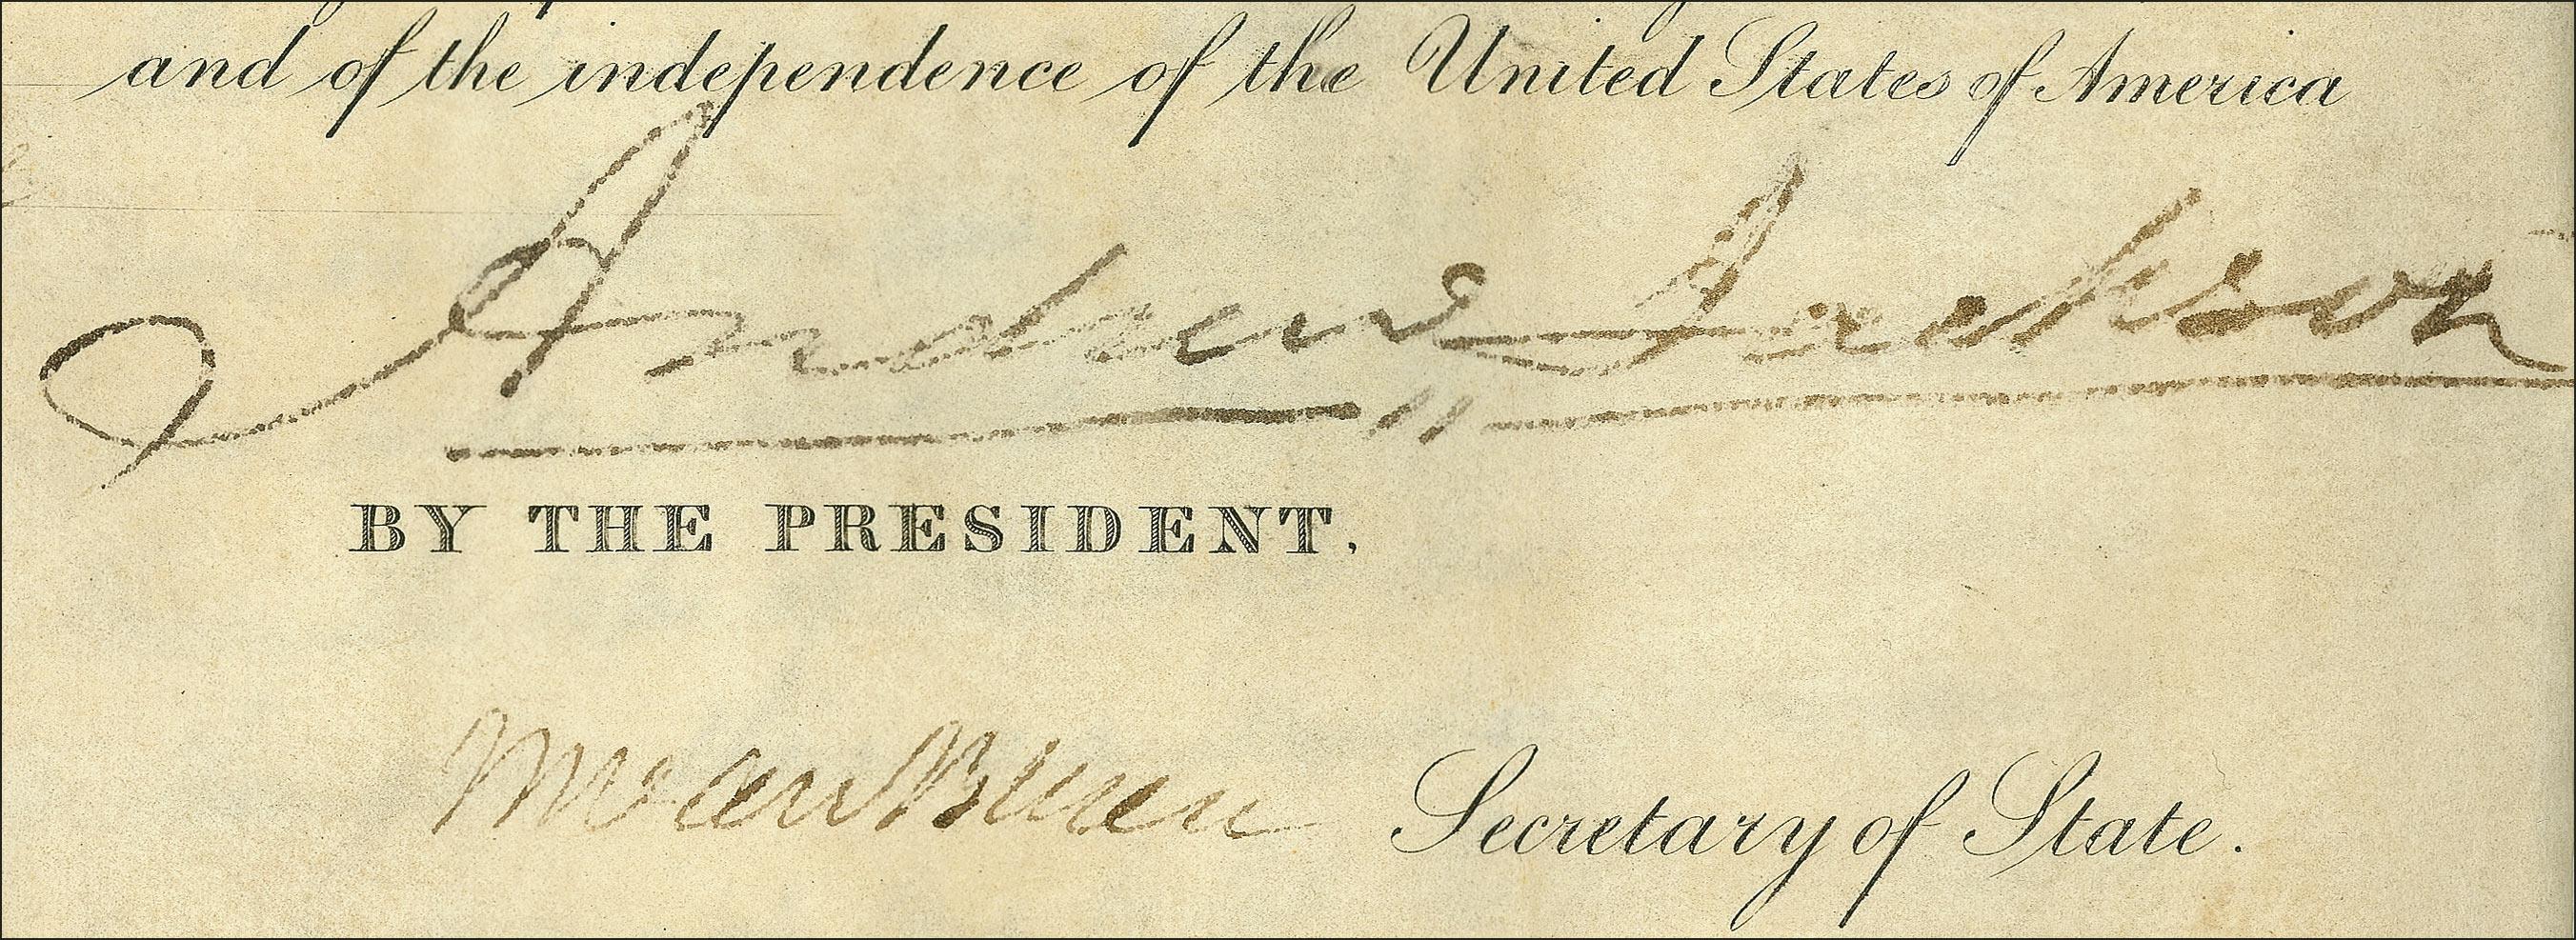 and of the independence of the United States of America
Andrew Jackson
BY THE PRESIDENT,
M Van Buren Secretary of State.